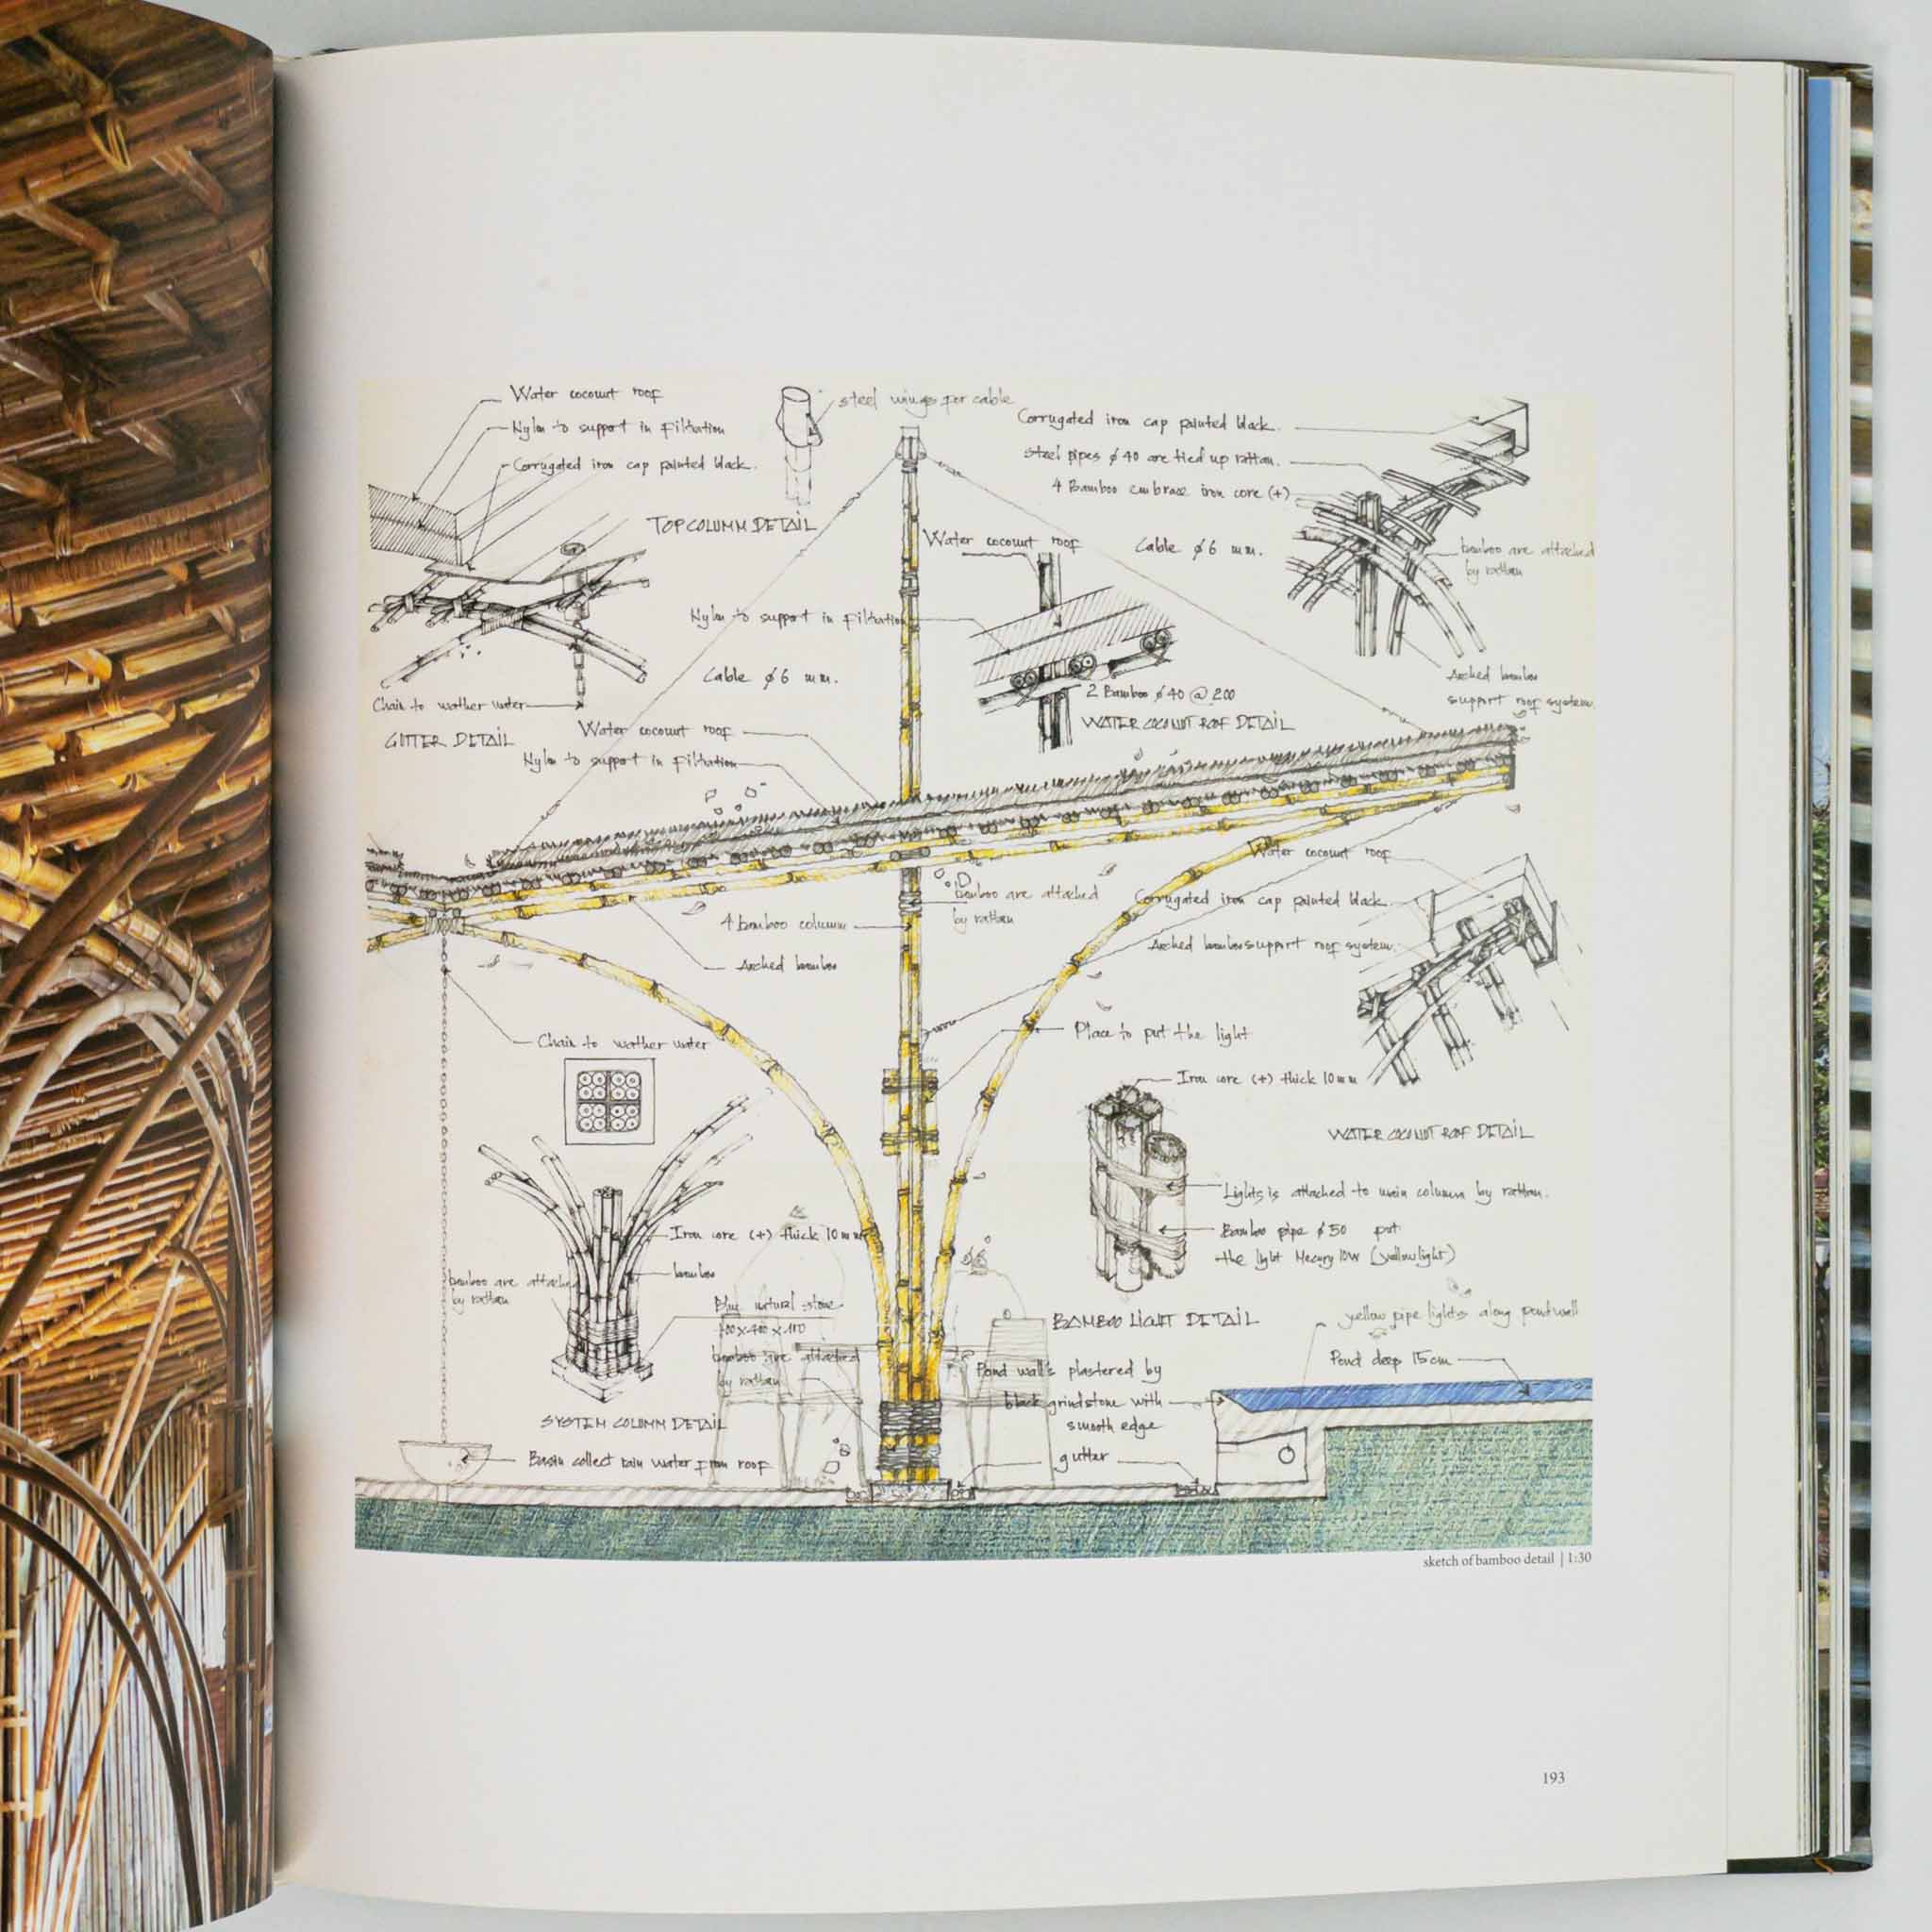 Water coconut roof
Nylon to support in Filtration
Corrugated iron cap painted black.
steel wings for cable
TOP COLUMM DETAIL
Corrugated iron cap painted black.
Steel pipes ø 40 are tied up rattan.
4 Bamboo embrace iron core (+)
bamboo are attached
by rattan
Water coconut roof
Cable ø6 mm.
Nylon to support in Filtration
Cable ø6 mm.
2 Bamboo ø 40 @ 200
WATER COCONUT ROOF DETAIL
Arched bamboo
support roof system.
Chain to wather water
GUTTER DETAIL
Water coconut roof
Nylon to support in Filtration
Water coconut roof
Corrugated iron cap painted black.
Arched bamboo support roof system.
bamboo are attached
by rattan
4 bamboo column
Arched bamboo
Chain to wather water
Place to put the light
Iron core (+) thick 10mm
WATER COCONUT ROOF DETAIL
Lights is attached to main column by rattan.
Bamboo pipe ø 50 put
the light Mecury 10W (yellow light)
BAMBOO LIGHT DETAIL
Iron core (+) thick 10mm
bamboo are attached
by rattan
bamboo
natural stone
bamboo are attached
by rattan
SYSTEM COLUMM DETAIL
Basin collect rain water from roof
yellow pipe lights along pond wall
Pond deep 15cm
Pond walls plastered by
black grindstone with
smooth edge
gutter
sketch of bamboo detail | 1:30
193